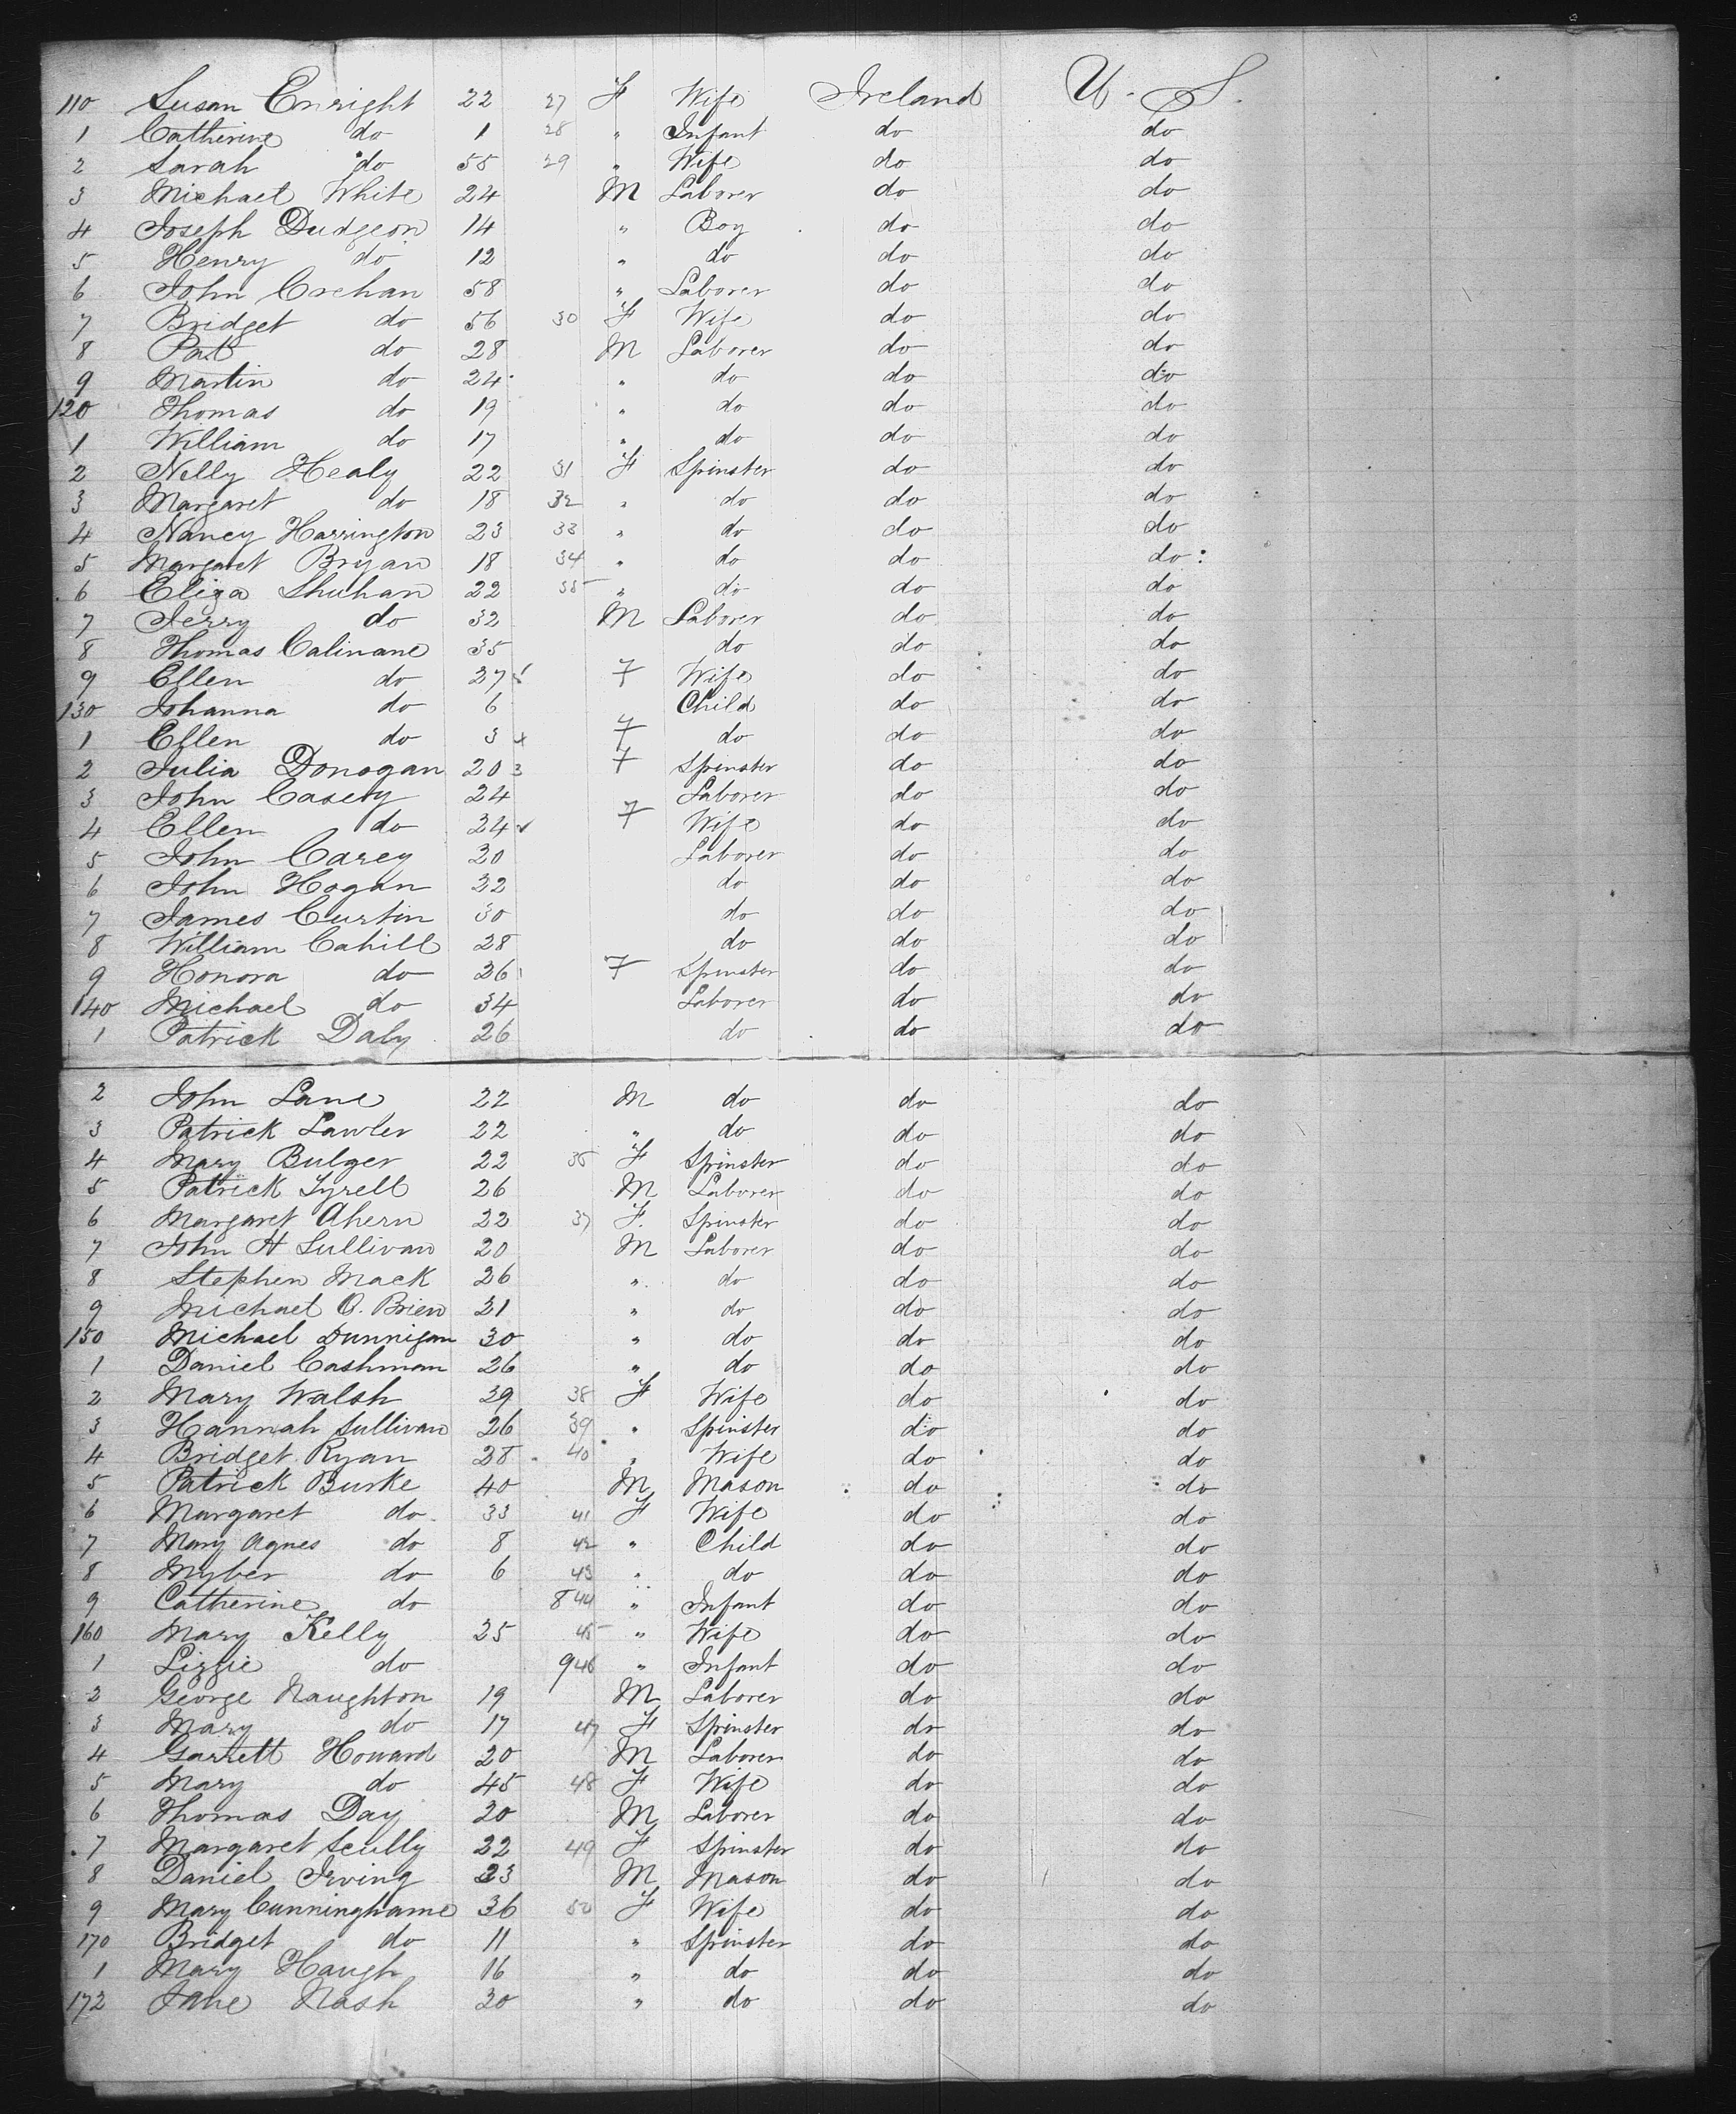 110 Susan Enright 22 27 F Wife Ireland U. S.
1 Catherine do 1 28 " Infant do do
2 Sarah do 55 29 " Wife do do
3 Michael White 24 M Laborer do do
4 Joseph Dudgeon 14 " Boy do do
5 Henry do 12 " do do do
6 John Crehan 58 " Laborer do do
7 Bridget do 56 30 F Wife do do
8 Pat do 28 M Laborer do do
9 Martin do 24 " do do do
120 Thomas do 19 " do do do
1 William do 17 " do do do
2 Nelly Healy 22 31 F Spinster do do
3 Margaret do 18 32 " do do do
4 Nancy Harrington 23 33 " do do do
5 Margaret Bryan 18 34 " do do do
6 Eliza Shuhan 22 35 " do do do
7 Jerry do 32 M Laborer do do
8 Thomas Calinane 35 do do do
9 Ellen do 27 F Wife do do
130 Johanna do 6 Child do do
1 Ellen do 3 F do do do
2 Julia Donogan 20 F Spinster do do
3 John Casey 24 Laborer do do
4 Ellen do 24 F Wife do do
5 John Carey 30 Laborer do do
6 John Hogan 32 do do do
7 James Curtin 30 do do do
8 William Cahill 28 do do do
9 Honora do 26 F Spinster do do
140 Michael do 34 Laborer do do
1 Patrick Daly 26 do do do
2 John Lane 22 M do do do
3 Patrick Lawler 22 " do do do
4 Mary Bulger 22 36 F Spinster do do
5 Patrick Tyrell 26 M Laborer do do
6 Margaret Ahern 22 37 F. Spinster do do
7 John H Sullivan 20 M Laborer do do
8 Stephen Mack 26 " do do do
9 Michael O. Brien 21 " do do do
150 Michael Dunnigan 30 " do do do
1 Daniel Cashman 26 " do do do
2 Mary Walsh 29 38 F Wife do do
3 Hannah Sullivan 26 39 " Spinster do do
4 Bridget Ryan 28 40 " Wife do do
5 Patrick Burke 40 M Mason do do
6 Margaret do 33 41 F Wife do do
7 Mary Agnes do 8 42 " Child do do
8 Myber do 6 43 " do do do
9 Catherine do 8 44 " Infant do do
160 Mary Kelly 25 45 " Wife do do
1 Lizzie do 9 46 " Infant do do
2 George Naughton 19 M Laborer do do
3 Mary do 17 47 F Spinster do do
4 Garrett Howard 20 M Laborer do do
5 Mary do 45 48 F Wife do do
6 Thomas Day 20 M Laborer do do
7 Margaret Scully 22 49 F Spinster do do
8 Daniel Irving 23 M Mason do do
9 Mary Cunninghame 36 50 F Wife do do
170 Bridget do 11 " Spinster do do
1 Mary Haugh 16 " do do do
172 Jane Nash 30 " do do do